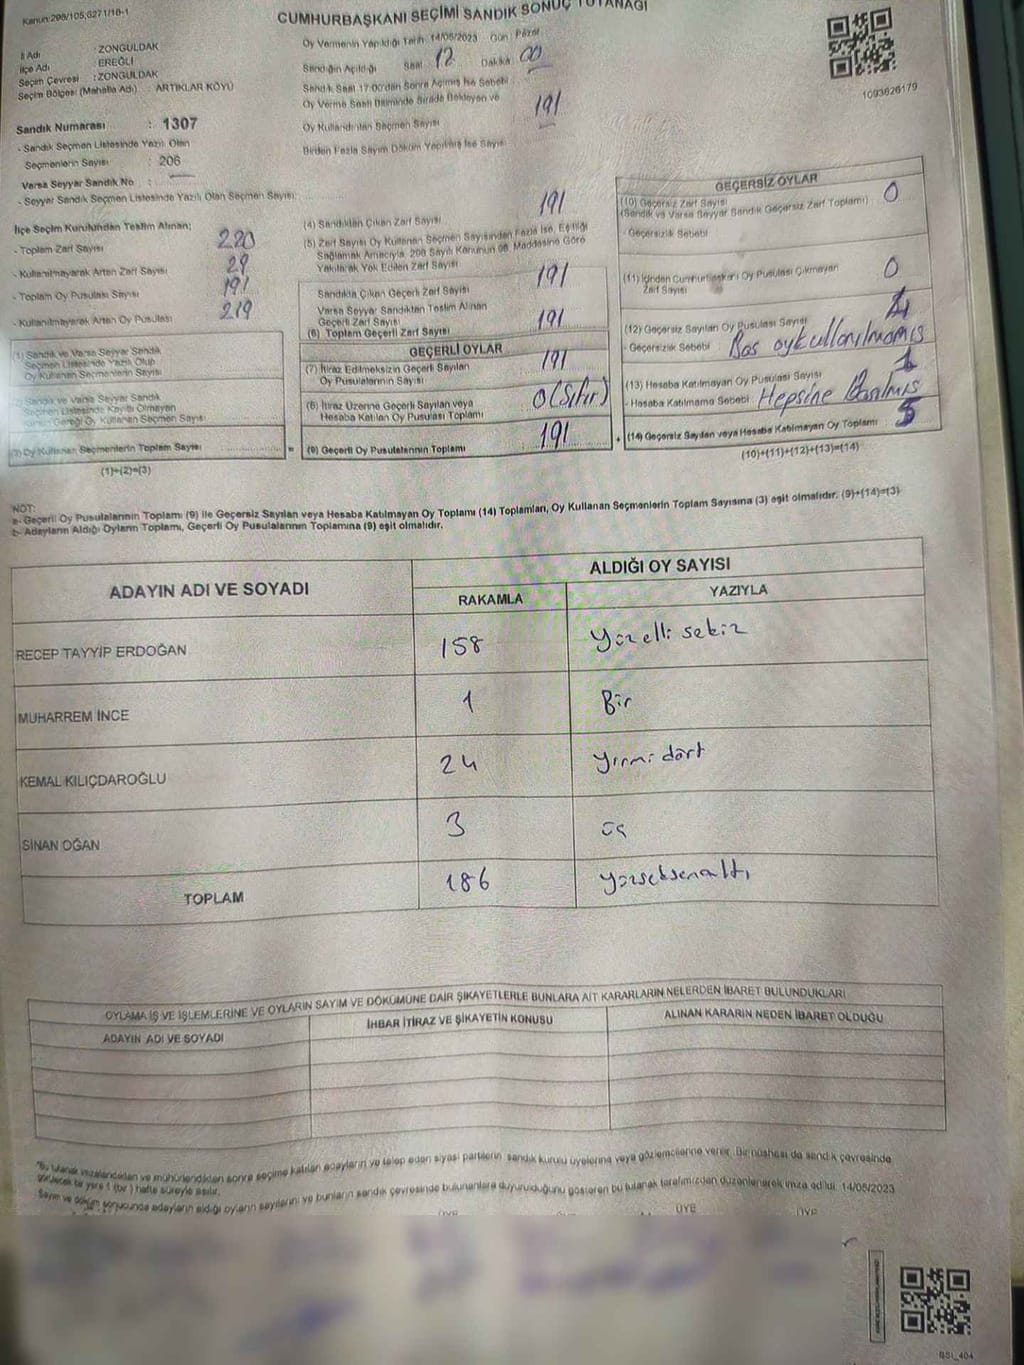 Kanun:298/105,6271/18-1
CUMHURBAŞKANI SEÇİMİ SANDIK SONUÇ TUTANAĞI
İl Adı : ZONGULDAK
İlçe Adı : EREĞLİ
Seçim Çevresi : ZONGULDAK
Seçim Bölgesi (Mahalle Adı) : ARTIKLAR KÖYÜ
Sandık Numarası : 1307
- Sandık Seçmen Listesinde Yazılı Olan
Seçmenlerin Sayısı : 206
Varsa Seyyar Sandık No :
- Seyyar Sandık Seçmen Listesinde Yazılı Olan Seçmen Sayısı:
Oy Vermenin Yapıldığı Tarih: 14/05/2023 Gün: Pazar
Sandığın Açıldığı Saat: 17 Dakika 00
Sandık Saati 17:00'dan Sonra Açılmış İse Sebebi
Oy Verme Saati Bitiminde Sırada Bekleyen ve
Oy Kullandırılan Seçmen Sayısı 191
Birden Fazla Sayım Döküm Yapılmış İse Sayısı
1093626179
İlçe Seçim Kurulundan Teslim Alınan;
- Toplam Zarf Sayısı 220
- Kullanılmayarak Artan Zarf Sayısı 29
- Toplam Oy Pusulası Sayısı 191
- Kullanılmayarak Artan Oy Pusulası 219
(1) Sandık ve Varsa Seyyar Sandık
Seçmen Listesinde Yazılı Olup
Oy Kullanan Seçmenlerin Sayısı
(2) Sandık ve Varsa Seyyar Sandık
Seçmen Listesinde Kayıtlı Olmayan
Kanun Gereği Oy Kullanan Seçmen Sayısı
(3) Oy Kullanan Seçmenlerin Toplam Sayısı =
(1)+(2)=(3)
(4) Sandıktan Çıkan Zarf Sayısı 191
(5) Zarf Sayısı Oy Kullanan Seçmen Sayısından Fazla İse, Eşitliği
Sağlamak Amacıyla, 298 Sayılı Kanunun 98. Maddesine Göre
Yakılarak Yok Edilen Zarf Sayısı
Sandıkta Çıkan Geçerli Zarf Sayısı 191
Varsa Seyyar Sandıktan Teslim Alınan
Geçerli Zarf Sayısı
(6) Toplam Geçerli Zarf Sayısı 191
GEÇERLİ OYLAR
(7) İtiraz Edilmeksizin Geçerli Sayılan
Oy Pusulalarının Sayısı 191
(8) İtiraz Üzerine Geçerli Sayılan veya
Hesaba Katılan Oy Pusulası Toplamı 0 (Sıfır)
(9) Geçerli Oy Pusulalarının Toplamı 191 +
GEÇERSİZ OYLAR
(10) Geçersiz Zarf Sayısı 0
(Sandık ve Varsa Seyyar Sandık Geçersiz Zarf Toplamı)
- Geçersizlik Sebebi
(11) İçinden Cumhurbaşkanı Oy Pusulası Çıkmayan
Zarf Sayısı 0
(12) Geçersiz Sayılan Oy Pusulası Sayısı 4
- Geçersizlik Sebebi Bos oy kullanılmamıs
(13) Hesaba Katılmayan Oy Pusulası Sayısı 1
- Hesaba Katılmama Sebebi Hepsine Basılmıs
(14) Geçersiz Sayılan veya Hesaba Katılmayan Oy Toplamı 5
(10)+(11)+(12)+(13)=(14)
NOT:
a- Geçerli Oy Pusulalarının Toplamı (9) ile Geçersiz Sayılan veya Hesaba Katılmayan Oy Toplamı (14) Toplamları, Oy Kullanan Seçmenlerin Toplam Sayısına (3) eşit olmalıdır. (9)+(14)=(3)
b- Adayların Aldığı Oyların Toplamı, Geçerli Oy Pusulalarının Toplamına (9) eşit olmalıdır.
ADAYIN ADI VE SOYADI ALDIĞI OY SAYISI
RAKAMLA YAZIYLA
RECEP TAYYİP ERDOĞAN 158 Yüzelli sekiz
MUHARREM İNCE 1 Bir
KEMAL KILIÇDAROĞLU 24 Yirmi dört
SİNAN OĞAN 3 üç
TOPLAM 186 Yüzseksenaltı
OYLAMA İŞ VE İŞLEMLERİNE VE OYLARIN SAYIM VE DÖKÜMÜNE DAİR ŞİKAYETLERLE BUNLARA AİT KARARLARIN NELERDEN İBARET BULUNDUKLARI
ADAYIN ADI VE SOYADI İHBAR İTİRAZ VE ŞİKAYETİN KONUSU ALINAN KARARIN NEDEN İBARET OLDUĞU
"Bu tutanak imzalandıktan ve mühürlendikten sonra seçime katılan adayların ve talep eden siyasi partilerin sandık kurulu üyelerine veya gözlemcilerine verilir. Bir nüshası da sandık çevresinde
görülecek bir yere 1 (bir) hafta süreyle asılır.
Sayım ve döküm sonucunda adayların aldığı oyların sayılarını ve bunların sandık çevresinde bulunanlara duyurulduğunu gösteren bu tutanak tarafımızdan düzenlenerek imza edildi. 14/05/2023
ÜYE ÜYE ÜYE
BSI_404